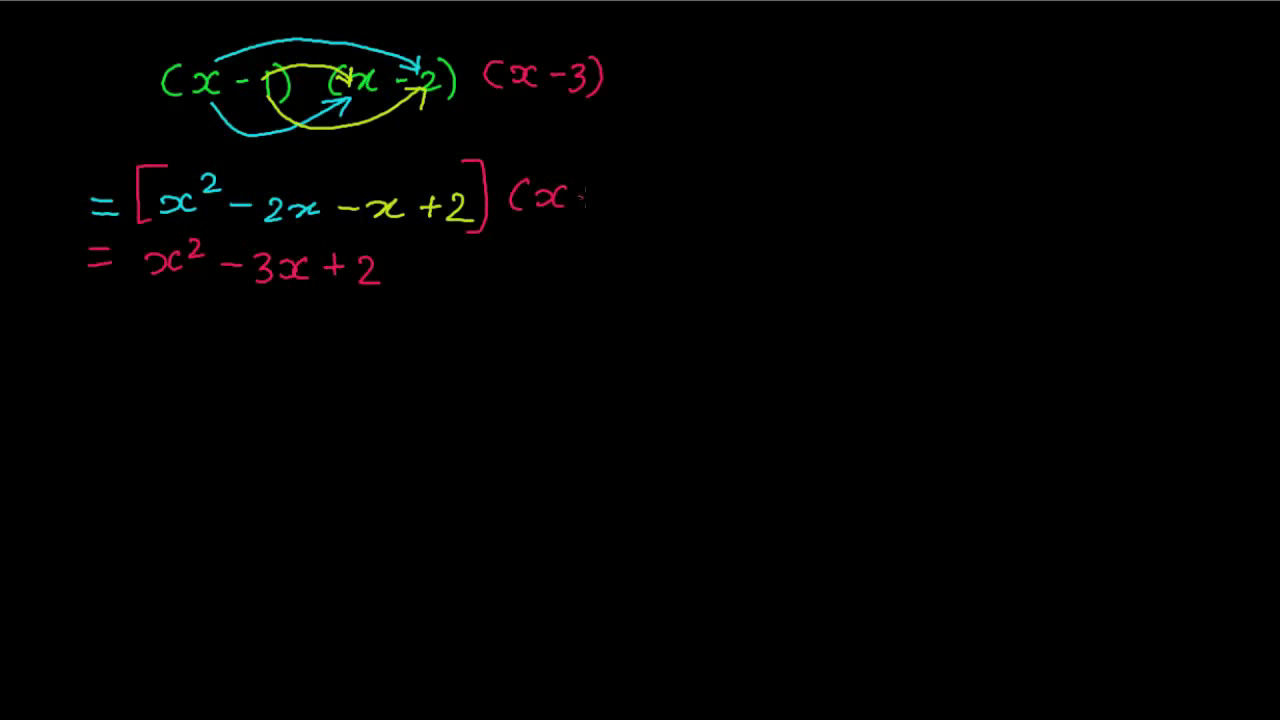 (x - 1) (x - 2) (x - 3)
= [x² - 2x - x + 2] (x
= x² - 3x + 2